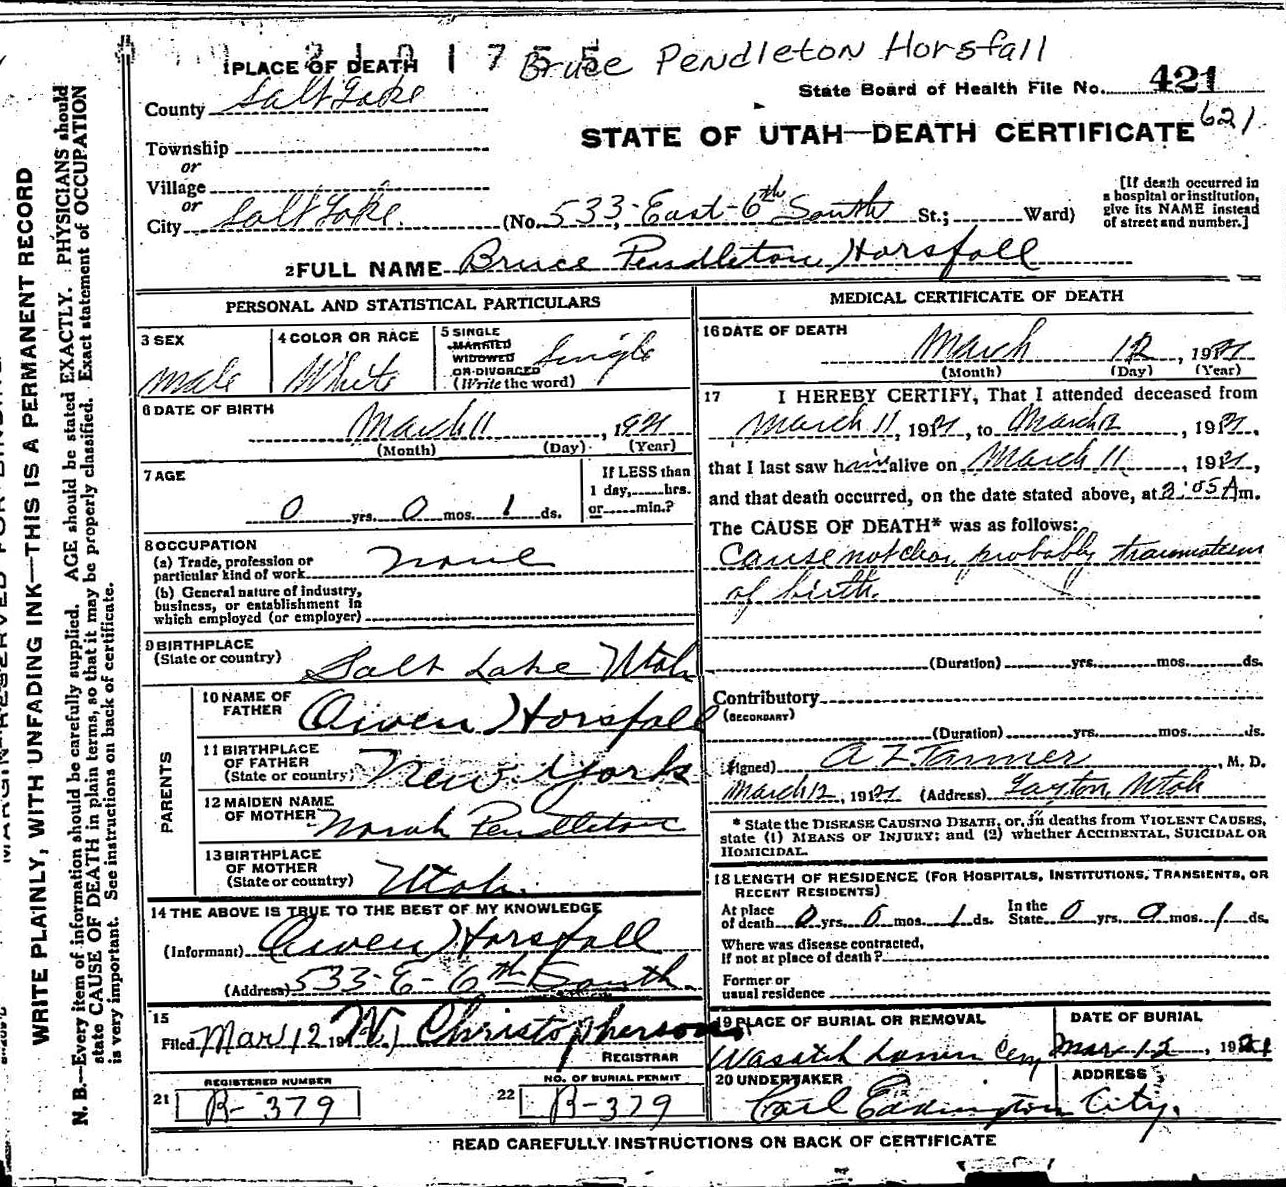 2101755 Bruce Pendleton Horsfall
1 PLACE OF DEATH
State Board of Health File No. 421
621
County Salt Lake
STATE OF UTAH—DEATH CERTIFICATE
Township
or
Village
or
City Salt Lake (No. 533 East 6th South St.; Ward)
[If death occurred in
a hospital or institution,
give its NAME instead
of street and number.]
2 FULL NAME Bruce Pendleton Horsfall
PERSONAL AND STATISTICAL PARTICULARS
3 SEX
Male
4 COLOR OR RACE
White
5 SINGLE
MARRIED
WIDOWED
OR DIVORCED
(Write the word)
Single
6 DATE OF BIRTH
March 11, 1921
(Month) (Day) (Year)
7 AGE
0 yrs. 0 mos. 1 ds.
If LESS than
1 day, hrs.
or min.?
8 OCCUPATION
(a) Trade, profession or
particular kind of work
none
(b) General nature of industry,
business, or establishment in
which employed (or employer)
9 BIRTHPLACE
(State or country) Salt Lake Utah
PARENTS
10 NAME OF
FATHER Owen Horsfall
11 BIRTHPLACE
OF FATHER
(State or country) New York
12 MAIDEN NAME
OF MOTHER Norah Pendleton
13 BIRTHPLACE
OF MOTHER
(State or country) Utah.
14 THE ABOVE IS TRUE TO THE BEST OF MY KNOWLEDGE
(Informant) Owen Horsfall
(Address) 533-E-6th South.
15
Filed Mar 12 19 W. Christopherson,
REGISTRAR
21 REGISTERED NUMBER
B-379
22 NO. OF BURIAL PERMIT
B-379
MEDICAL CERTIFICATE OF DEATH
16 DATE OF DEATH
March 12, 1921
(Month) (Day) (Year)
17 I HEREBY CERTIFY, That I attended deceased from
March 11, 1921, to March 12, 1921,
that I last saw him alive on March 11, 1921,
and that death occurred, on the date stated above, at 2:05 A m.
The CAUSE OF DEATH* was as follows:
Cause not clear, probably traumatism
of birth.
(Duration) yrs. mos. ds.
Contributory
(SECONDARY)
(Duration) yrs. mos. ds.
(Signed) A Z Tanner, M. D.
March 12, 1921 (Address) Layton, Utah
* State the DISEASE CAUSING DEATH, or, in deaths from VIOLENT CAUSES,
state (1) MEANS OF INJURY; and (2) whether ACCIDENTAL, SUICIDAL OR
HOMICIDAL.
18 LENGTH OF RESIDENCE (FOR HOSPITALS, INSTITUTIONS, TRANSIENTS, OR
RECENT RESIDENTS)
At place
of death 0 yrs 0 mos. 1 ds. In the
State 0 yrs. 0 mos. 1 ds.
Where was disease contracted,
if not at place of death?
Former or
usual residence
19 PLACE OF BURIAL OR REMOVAL
Wasatch Lawn Cem
DATE OF BURIAL
Mar 12, 1921
20 UNDERTAKER
Carl Eddington
ADDRESS
City.
READ CAREFULLY INSTRUCTIONS ON BACK OF CERTIFICATE
WRITE PLAINLY, WITH UNFADING INK—THIS IS A PERMANENT RECORD
N. B.—Every item of information should be carefully supplied. AGE should be stated EXACTLY. PHYSICIANS should
state CAUSE OF DEATH in plain terms, so that it may be properly classified. Exact statement of OCCUPATION
is very important. See instructions on back of certificate.